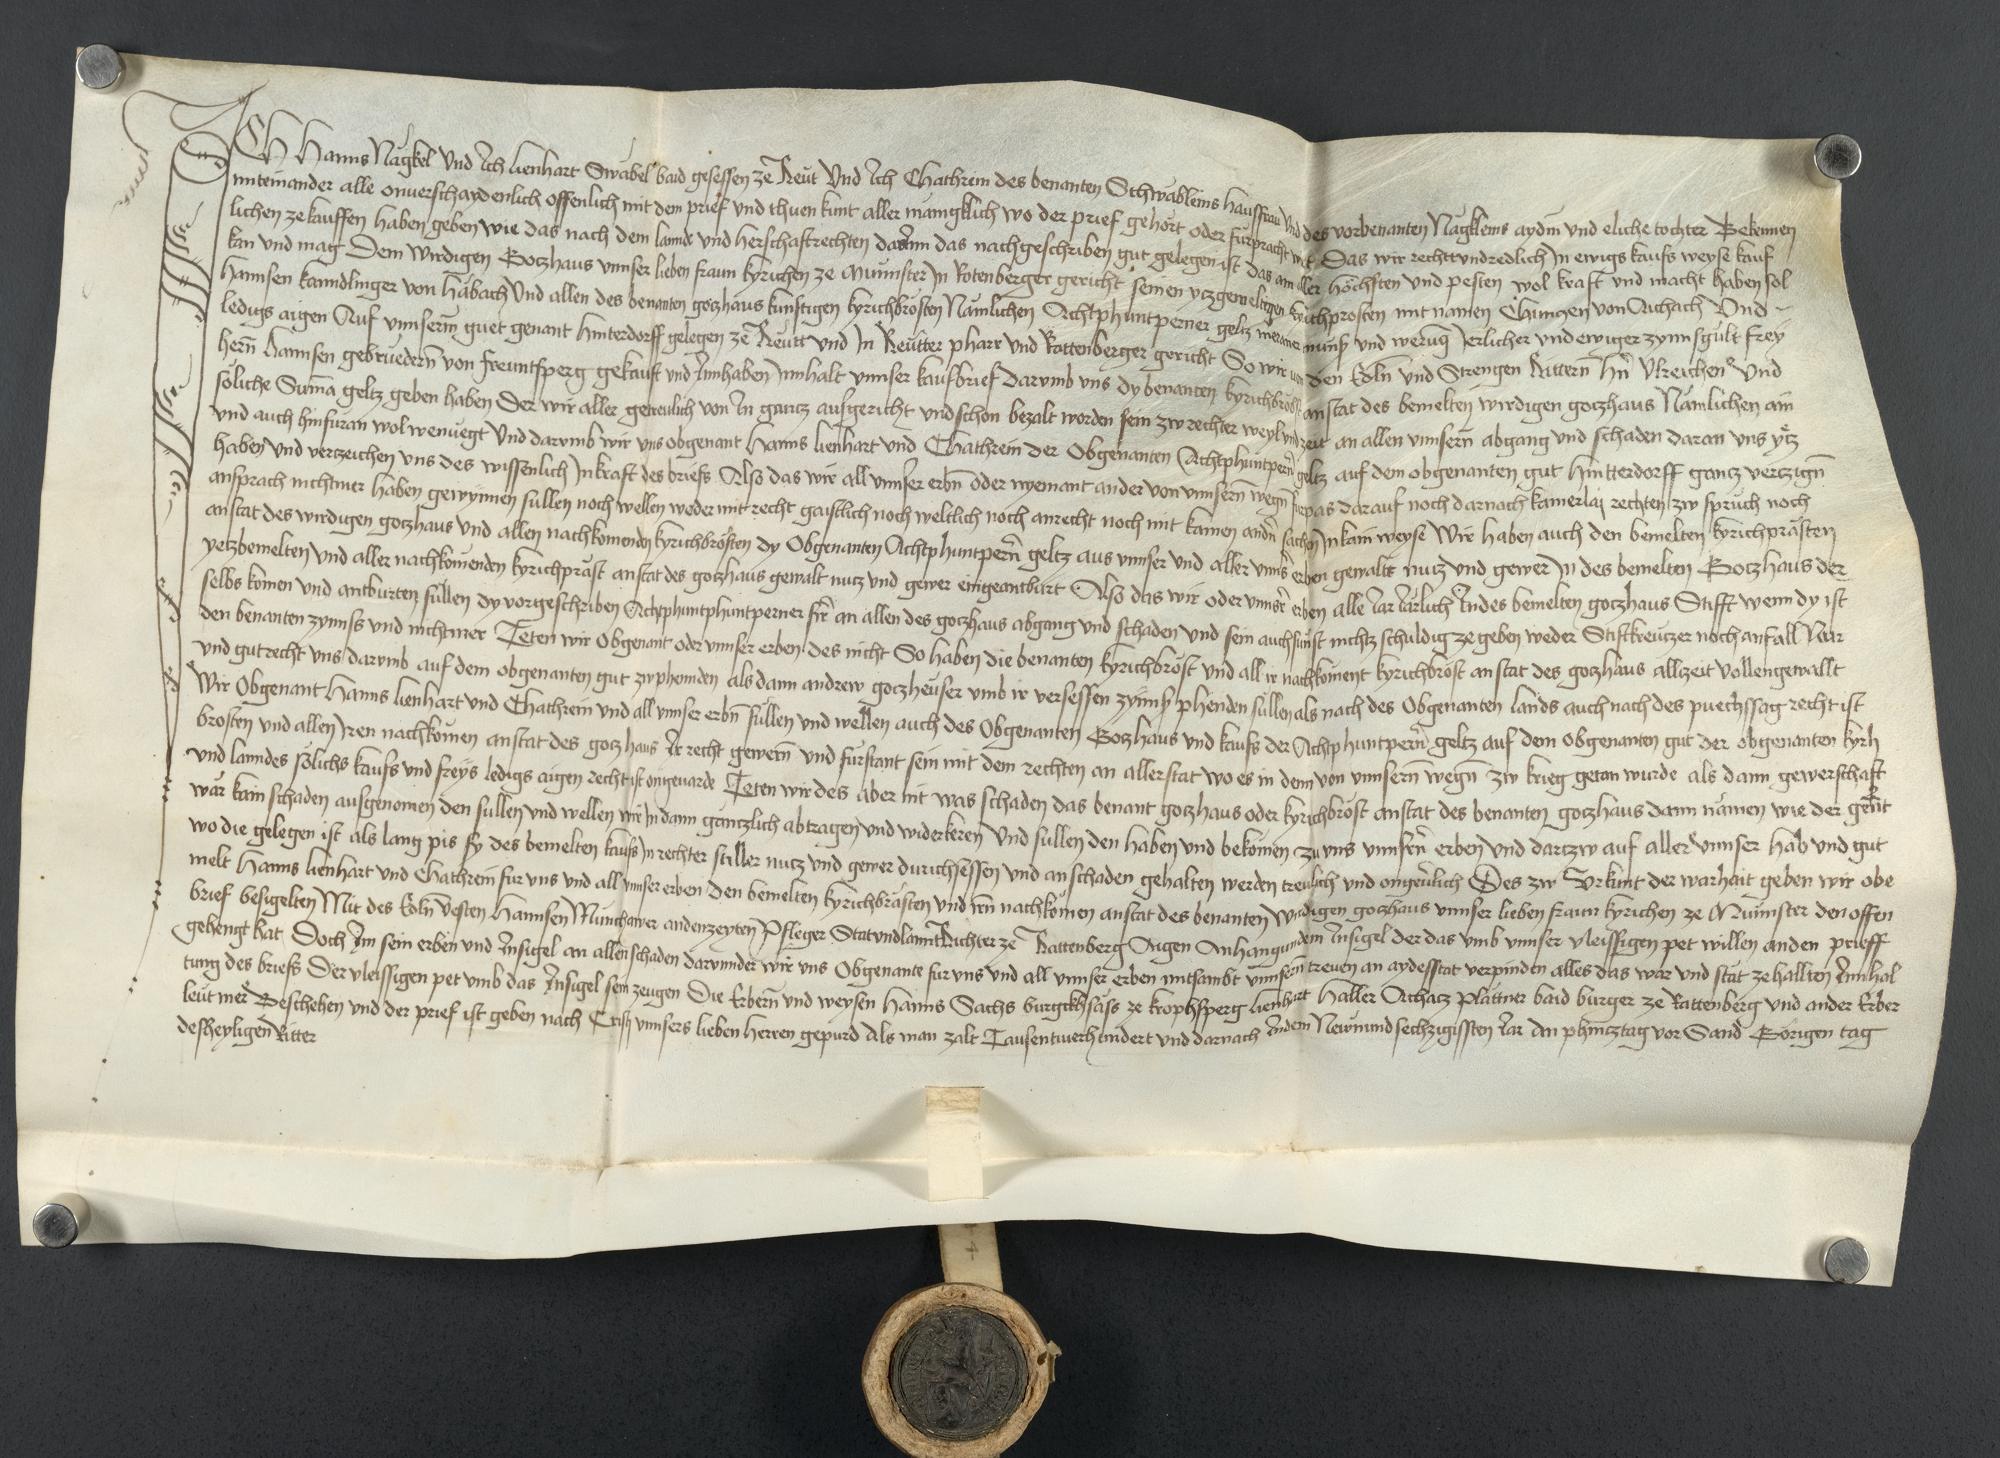 ICH Hanns Nägkel Und Ich lienhart Swäbel baid gesessen ze Reut Und Ich Chathrein des benanten Schwäbleins hausfrau Und des vorbenanten Nägkleins aydm und eliche tochter Bekennen
miteinander alle onuerschaydenlich offenlich mit dem prief und thuen kunt aller mänigklich wo der prief gehört oder fürpracht wirt Das wir recht und redlich In ewigs kaufs weyse kauf
lichen ze kauffen haben geben wie das nach dem lannds und herschaftrechten darinn das nachgeschriben gut gelegen ist das am aller höchsten und pesten wol kraft und macht haben sol
kan und mag Dem wirdigen Gotzhaus unnser lieben fraun kyrichen ze Münster In Rotenberger gericht seinen yczgemelten kirchprosten mit namen Chunczen von Achach Und
Hannsen kanndlinger von Habach Und allen des benanten gotzhaus kunftigen kyrichbrösten Nämlichen Achtphuntperner geltz meraner münss und werung Ierlicher und ewiger zynnsgült frey
ledigs aigen Auf unnserm guet genant Hinterdorff gelegen ze Reutt und In Reutter pharr und Rattenberger gericht So wir von den Edeln und Strengen Rittern hern Ulreichen Und
hern Hannsen gebruedern von freuntsperg gekauft und Innhaben Innhalt unnser kaufbrief darumb uns dy benanten kyrichbröst anstat des bemelten wirdigen gotzhaus Nämlichen ain
söliche Suma geltz geben haben Der wir aller getreulich von In gantz ausgericht und schon bezalt worden sein zw rechter weyl und zeit an allen unnsern abgang und schaden daran uns ytz
und auch hinfüran wol wenüegt Und darumb wir uns obgenant Hanns lienhart und Chathrein der Obgenanten Achtphuntpern geltz auf dem obgenanten gut Hintterdorff gantz verzigen
haben Und vertzeichen uns des wissenlich In kraft des briefs Also das wir all unnser erbn oder nyemant ander von unnsern wegn furpas darauf noch darnach kainerlay rechten zw spruch noch
ansprach nichtmer haben gewynnen sullen noch wellen weder mit recht gaistlich noch weltlich noch anrecht noch mit kainen andern sachen In kain weyse Wir haben auch den bemelten kyrichprästen
anstat des wirdigen gotzhaus und allen nachkomenden kyrichbrösten dy Obgenanten Achtphuntpern geltz aus unnser und aller unnser erben gewalt nutz und gewer In des bemelten Gotzhaus der
yetzbemelten und aller nachkomenden kyrichpräst anstat des gotzhaus gewalt nutz und gewer eingeantburt Also das wir oder unnser erben alle Iar Iärlich In des bemelten gotzhaus Stifft wenn dy ist
selbs komen und antburten sullen dy vorgeschriben Achtphuntphuntperner für an allen des gotzhaus abgang und schaden und sein auch sunst nichtz schuldig ze geben weder Stiftkreutzer noch anfall Nur
den benanten zynnss und nichtmer Teten wir Obgenant oder unnser erben des nicht So haben die benanten kyrichbröst und all ir nachkoment kyrichbröst anstat des gotzhaus allzeit vollengewallt
und gut recht uns darumb auf dem obgenanten gut zw phennden als dann andrew gotzheuser umb ir versessen zynnss phenden sullen als nach des Obgenanten lands auch nach des puechssag recht ist
Wir Obgenant Hanns lienhart und Chathrein und all unnser erbn sullen und wellen auch des Obgenanten Gotzhaus und kaufs der Achtphuntpern geltz auf dem obgenanten gut der obgenanten kyrh
brosten und allen Iren nachkomen anstat des gotzhaus Ir recht gewern und fürstant sein mit dem rechten an aller stat wo es in dem von unnsern wegn zw krieg getan wurde als dann gewerschaft
und lanndes sölichs kaufs und freys ledigs aigen recht ist ongeuarde Teten wir des aber nit was schaden das benant gotzhaus oder kyrichbröst anstat des benanten gotzhaus dann nämen wie der genent
wär kain schaden ausgenomen den sullen und wellen wir In dann gantzlich abtragen und widerkeren Und sullen den haben und bekomen zu uns unnsern erben und dartzw auf aller unnser hab und gut
wo die gelegen ist als lang pis sy des bemelten kaufs In rechter stiller nutz und gewer durichsessen und an schaden gehalten werden treulich und ongeuerlich Des zw Urkunt der warhait geben wir obe
melt Hanns lienhart und Chathrein für uns und all unnser erben den bemelten kyrichbrästen und iren nachkomen anstat des benanten wirdigen gotzhaus unnser lieben fraun kyrichen ze Münster den offen
brief besigelten Mit des Edeln vesten Hannsen Münchawer an den zeyten Pfleger Stat und lannt Richter ze Rattenberg Aigen Anhangundem Insigel der das umb unnser vleissigen pet willen an den prieff
gehengt hat Doch Im sein erben und Insigel an allen schaden darunder wir uns Obgenante für uns und all unnser erben mitsambt unnsern treuen an aydesstat verpinden alles das war und stät ze hallten Innhal
tung des briefs Der vleissigen pet umb das Insigel sein zeugen Die Erbern und weysen Hanns Sachs burgkhsäss ze kropfsperg lienhart Haller Achatz Plattner baid burger ze Rattenberg und ander Erber
leut mer Beschehen und der prief ist geben nach Cristj unnsers lieben herren gepurd Als man zalt Tausentvierhundert und darnach In dem Newnundsechzigissten Iar An phincztag vor Sand Görigen tag
des heyligen Ritter